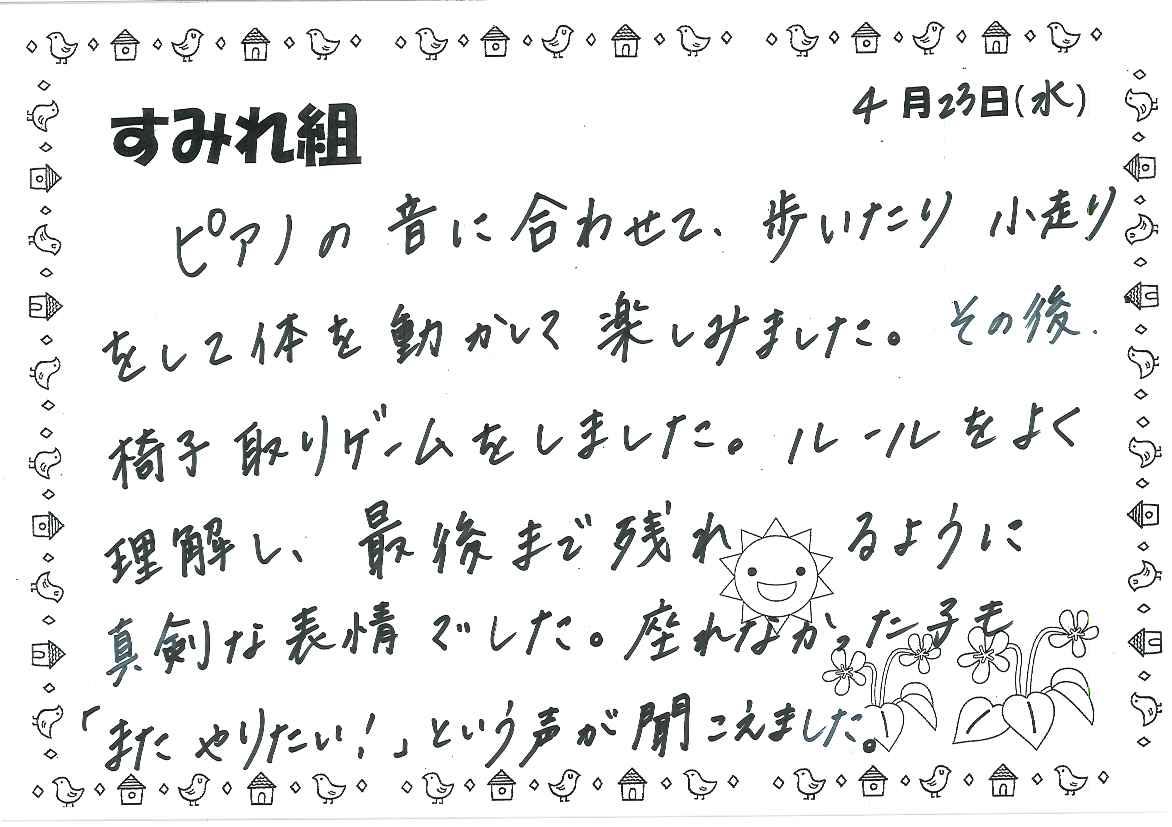 4月23日(水)
すみれ組
ピアノの音に合わせて、歩いたり小走り
をして体を動かして楽しみました。その後、
椅子取りゲームをしました。ルールをよく
理解し、最後まで残れるように
真剣な表情でした。座れなかった子も
「またやりたい!」という声が聞こえました。